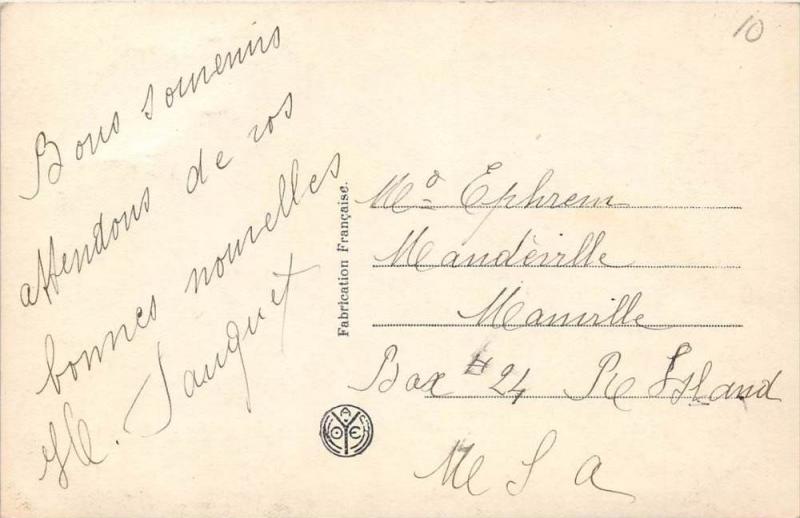 10
Bons souvenirs
attendons de vos
bonnes nouvelles
H. Jauquet
Fabrication Française.
Mᵃ Ephrem
Mandeville
Manville
Box # 24 R Island
U S A